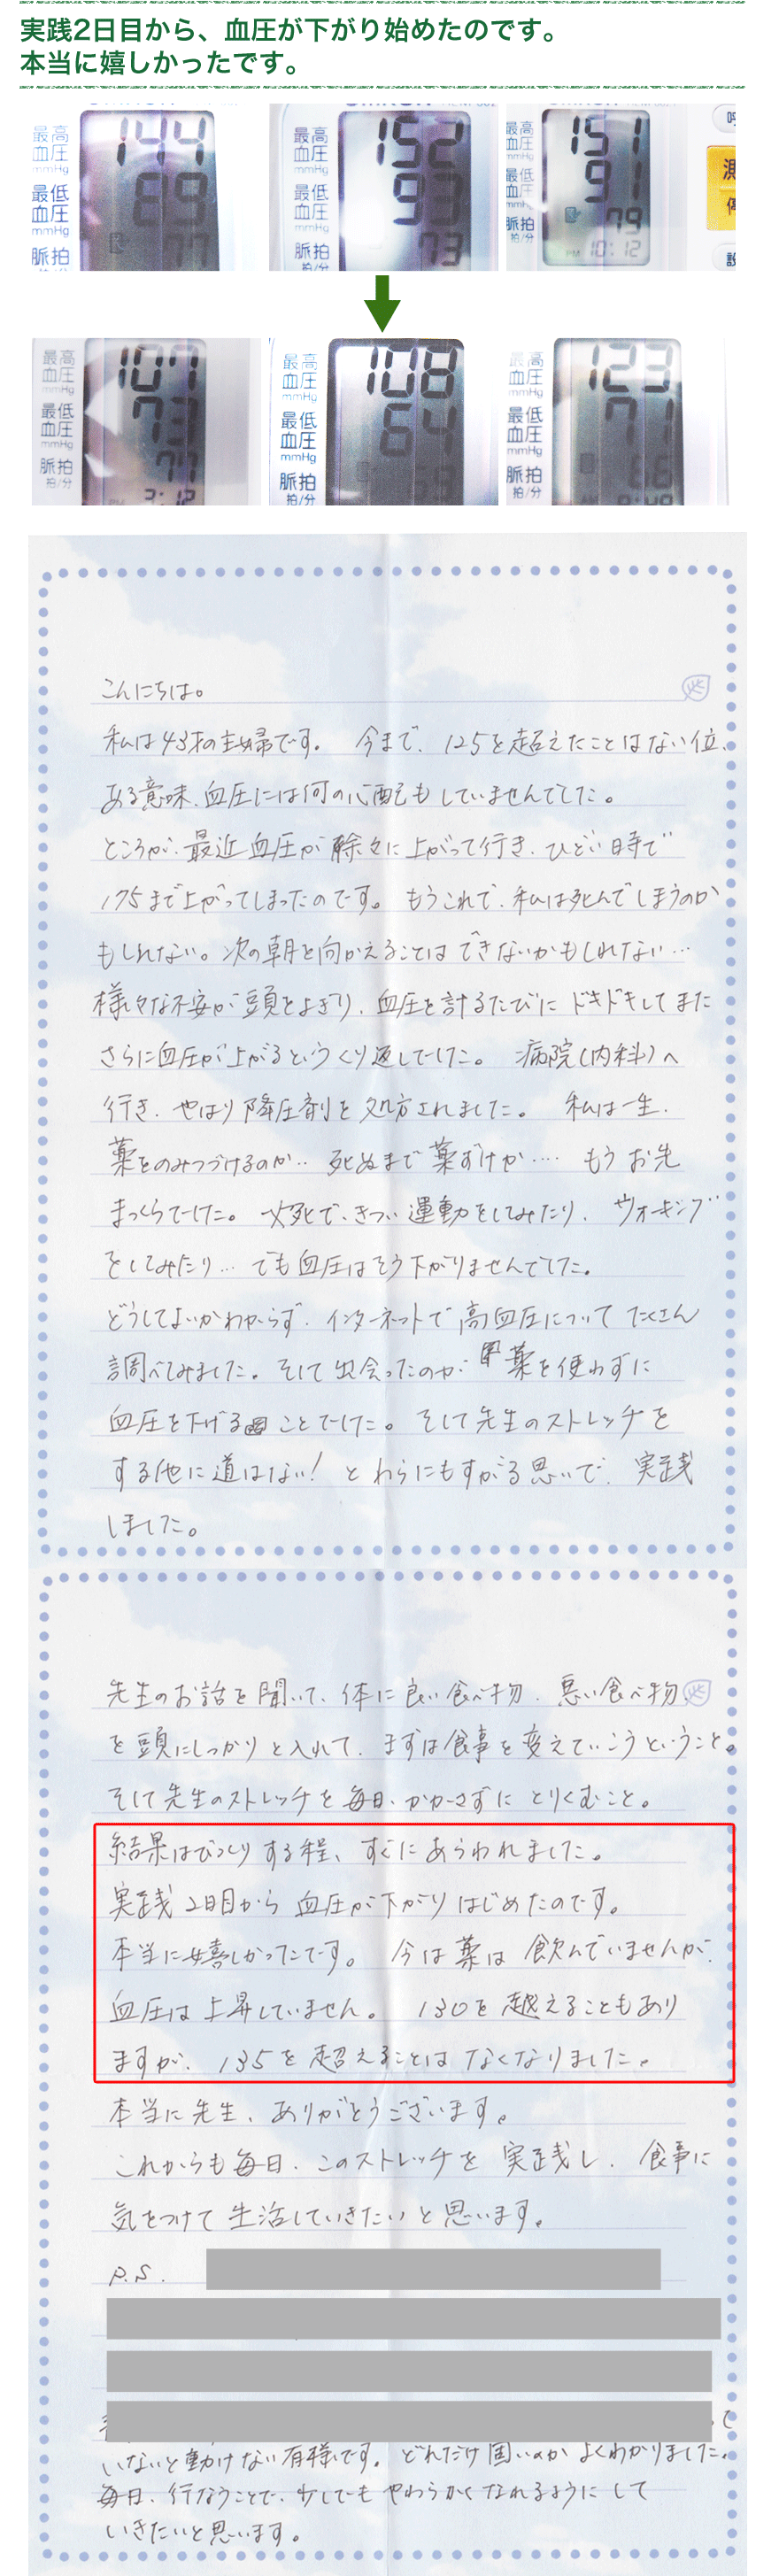 実践2日目から、血圧が下がり始めたのです。
本当に嬉しかったです。
最高血圧 mmHg 144
最低血圧 mmHg 89
脈拍 拍/分 77
最高血圧 mmHg 152
最低血圧 mmHg 93
脈拍 拍/分 73
最高血圧 mmHg 151
最低血圧 mmHg 91
脈拍 拍/分 79
PM 10:12
最高血圧 mmHg 107
最低血圧 mmHg 73
脈拍 拍/分 77
3:12
最高血圧 mmHg 108
最低血圧 mmHg 64
脈拍 拍/分
最高血圧 mmHg 123
最低血圧 mmHg 71
脈拍 拍/分 66
こんにちは。
私は43才の主婦です。 今まで、125を超えたことはない位、
ある意味、血圧には何の心配もしていませんでした。
ところが、最近血圧が除々に上がって行き、ひどい日時で
175まで上がってしまったのです。 もうこれで、私は死んでしまうのか
もしれない。次の朝を向かえることはできないかもしれない…
様々な不安が頭をよぎり、血圧を計るたびにドキドキしてまた
さらに血圧が上がるというくり返しでした。 病院(内科)へ
行き、やはり降圧剤を処方されました。 私は一生、
薬をのみつづけるのか‥ 死ぬまで薬ずけか‥‥ もうお先
まっくらでした。 必死で、きつい運動をしてみたり、ウォーキング
をしてみたり… でも血圧はそう下がりませんでした。
どうしてよいかわからず、インターネットで高血圧についてたくさん
調べてみました。そして出会ったのが 薬を使わずに
血圧を下げる ことでした。そして先生のストレッチを
する他に道はない! とわらにもすがる思いで、実践
しました。
先生のお話を聞いて、体に良い食べ物、悪い食べ物
を頭にしっかりと入れて、まずは食事を変えていこうということ。
そして先生のストレッチを毎日、かかさずにとりくむこと。
結果はびっくりする程、すぐにあらわれました。
実践2日目から血圧が下がりはじめたのです。
本当に嬉しかったです。 今は薬は飲んでいませんが、
血圧は上昇していません。 130を越えることもあり
ますが、135を超えることはなくなりました。
本当に先生、ありがとうございます。
これからも毎日、このストレッチを実践し、食事に
気をつけて生活していきたいと思います。
P.S.
いないと動けない有様です。どれだけ固いのかよくわかりました。
毎日、行なうことで、少しでもやわらかくなれるようにして
いきたいと思います。